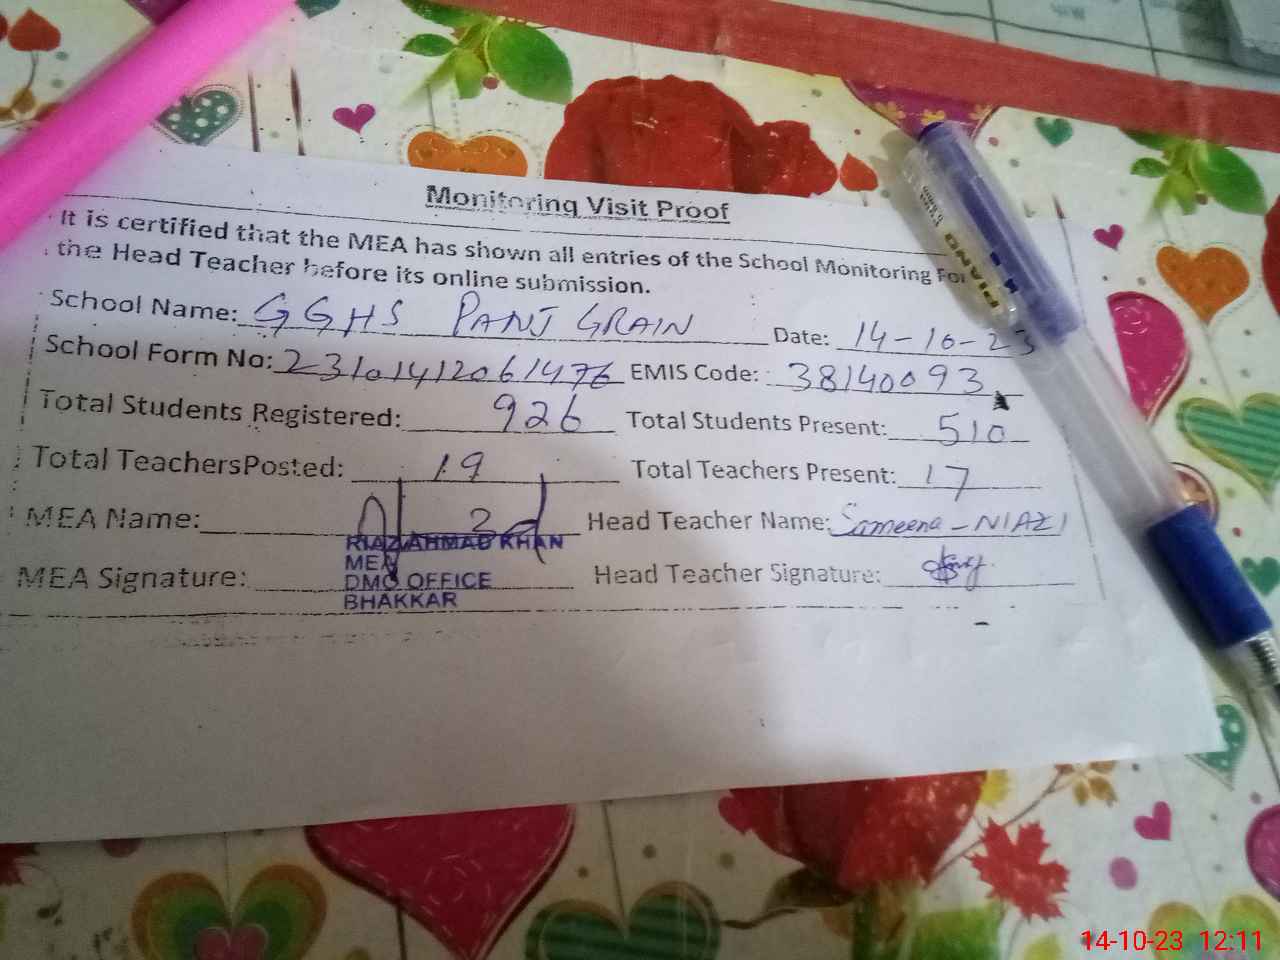 Monitoring Visit Proof
It is certified that the MEA has shown all entries of the School Monitoring For
the Head Teacher before its online submission.
School Name: GGHS PANJ GRAIN Date: 14-10-23
School Form No: 23101412061476 EMIS Code: 38140093
Total Students Registered: 926 Total Students Present: 510
Total TeachersPosted: 19 Total Teachers Present: 17
MEA Name: Head Teacher Name: Sameena-NIAZI
RIAZ AHMAD KHAN
MEA
MEA Signature: DMO OFFICE Head Teacher Signature:
BHAKKAR
PIANO
14-10-23 12:11